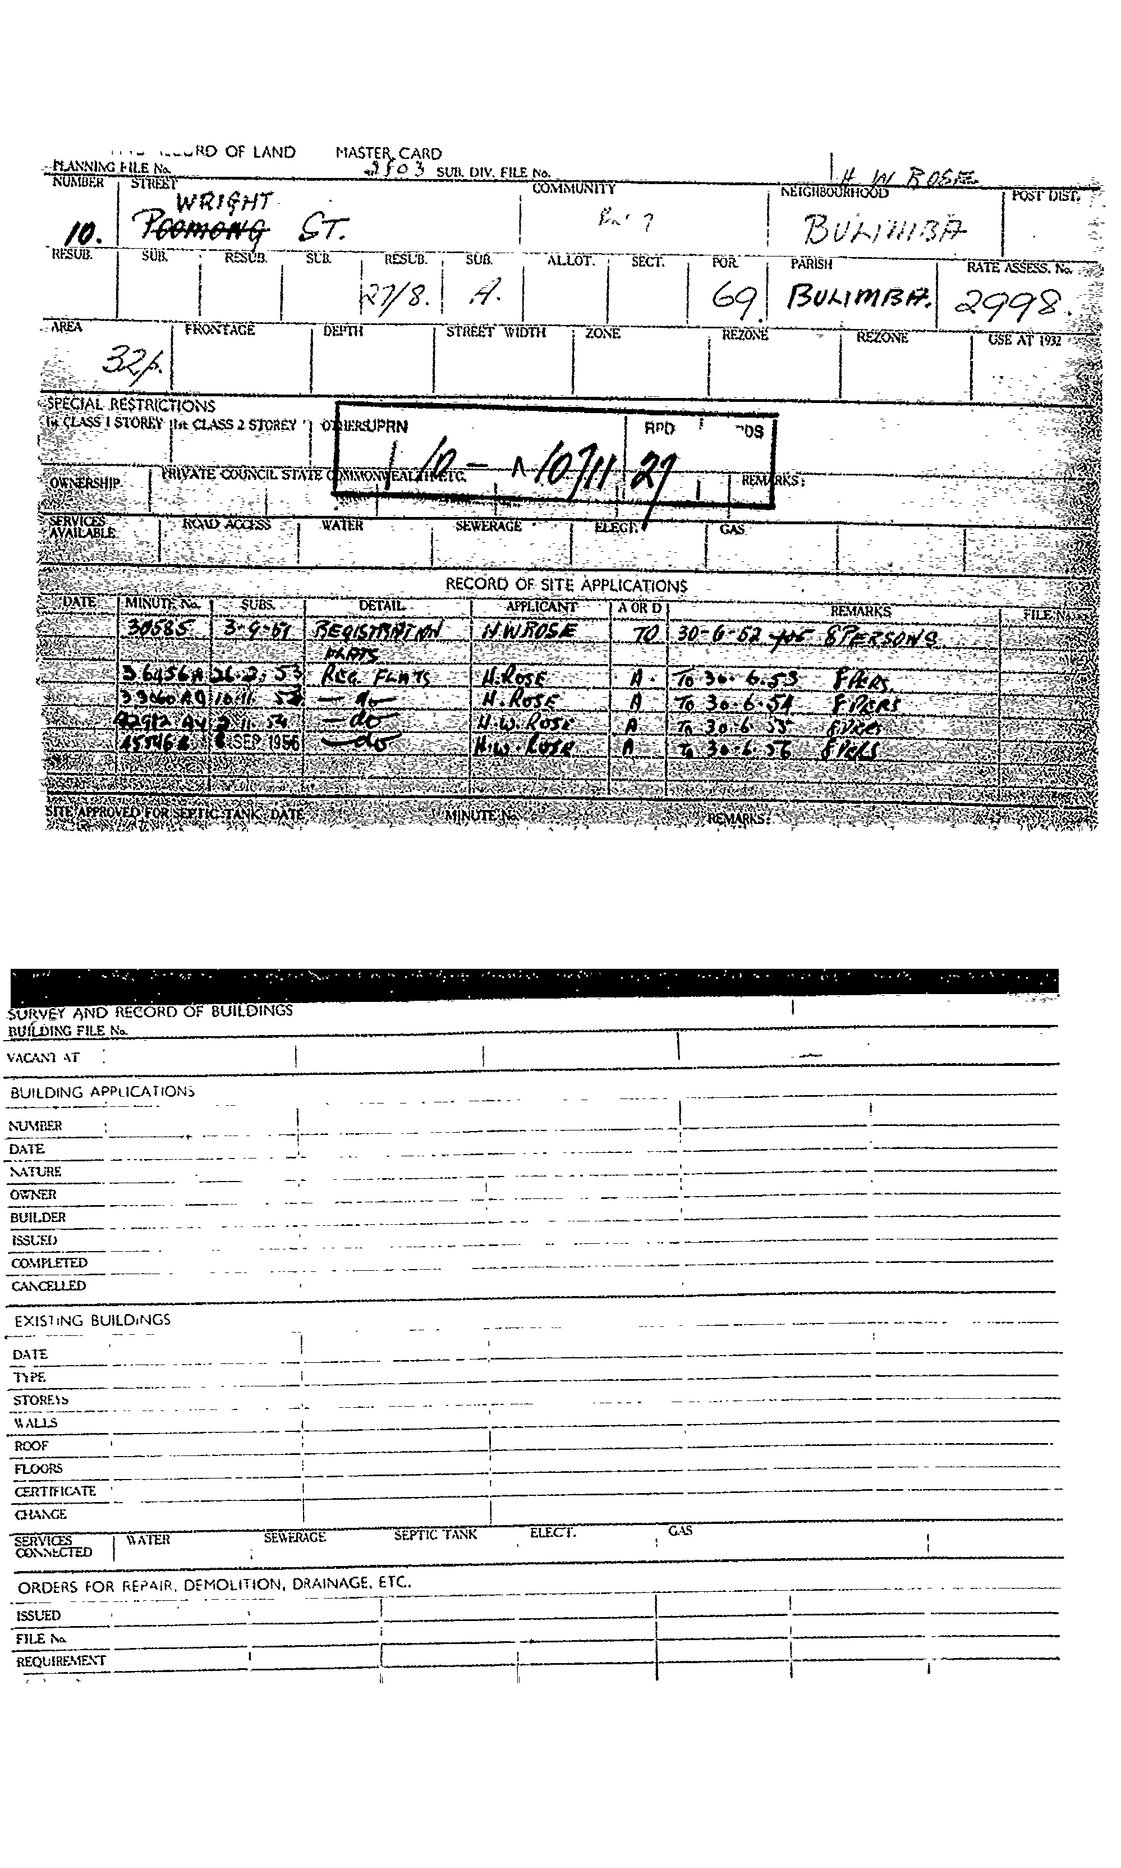 RD OF LAND MASTER CARD
PLANNING FILE No. 2803 SUB. DIV. FILE No. H W ROSE
NUMBER STREET COMMUNITY NEIGHBOURHOOD POST DIST.
WRIGHT
10. ST. BULIMBA
RESUB. SUB. RESUB. SUB. RESUB. SUB. ALLOT. SECT. POR. PARISH RATE ASSESS. No.
27/8. A. 69. BULIMBA. 2998.
AREA FRONTAGE DEPTH STREET WIDTH ZONE REZONE REZONE USE AT 1932
32p.
SPECIAL RESTRICTIONS
1st CLASS 1 STOREY 1st CLASS 2 STOREY OTHERS UPRN RPD
10 - 10711 27
OWNERSHIP PRIVATE COUNCIL STATE COMMONWEALTH ETC. REMARKS:
SERVICES AVAILABLE ROAD ACCESS WATER SEWERAGE ELECT. GAS
RECORD OF SITE APPLICATIONS
DATE MINUTE No. SUBS. DETAIL APPLICANT A OR D REMARKS FILE No.
30585 REGISTRATION H W ROSE TO 30-6-52 8 PERSONS
FLATS
26.2.53 REG. FLATS H. ROSE A. To 30.6.53 8 PERS
— do — H. ROSE A To 30-6-54 8 PERS
— do H.W. ROSE A To 30-6-55 8 PERS
SEP 1956 — do H.W. ROSE A To 30-6-56 8 PERS
SITE APPROVED FOR SEPTIC TANK, DATE MINUTE No. REMARKS:
SURVEY AND RECORD OF BUILDINGS
BUILDING FILE No.
VACANT AT
BUILDING APPLICATIONS
NUMBER
DATE
NATURE
OWNER
BUILDER
ISSUED
COMPLETED
CANCELLED
EXISTING BUILDINGS
DATE
TYPE
STOREYS
WALLS
ROOF
FLOORS
CERTIFICATE
CHANGE
SERVICES CONNECTED WATER SEWERAGE SEPTIC TANK ELECT. GAS
ORDERS FOR REPAIR, DEMOLITION, DRAINAGE, ETC.
ISSUED
FILE No.
REQUIREMENT